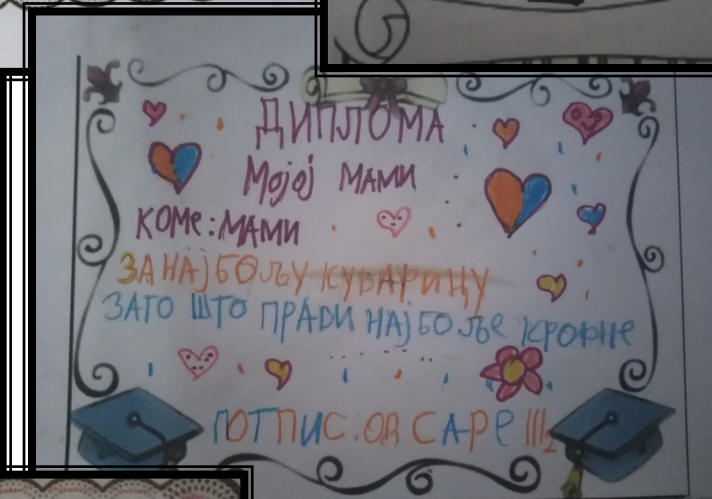 ДИПЛОМА
Мојој МАМИ
КОМЕ: МАМИ
ЗА НАЈБОЉУ КУВАРИЦУ
ЗАТО ШТО ПРАВИ НАЈБОЉЕ КРОФНЕ
ПОТПИС. ОД САРЕ III2